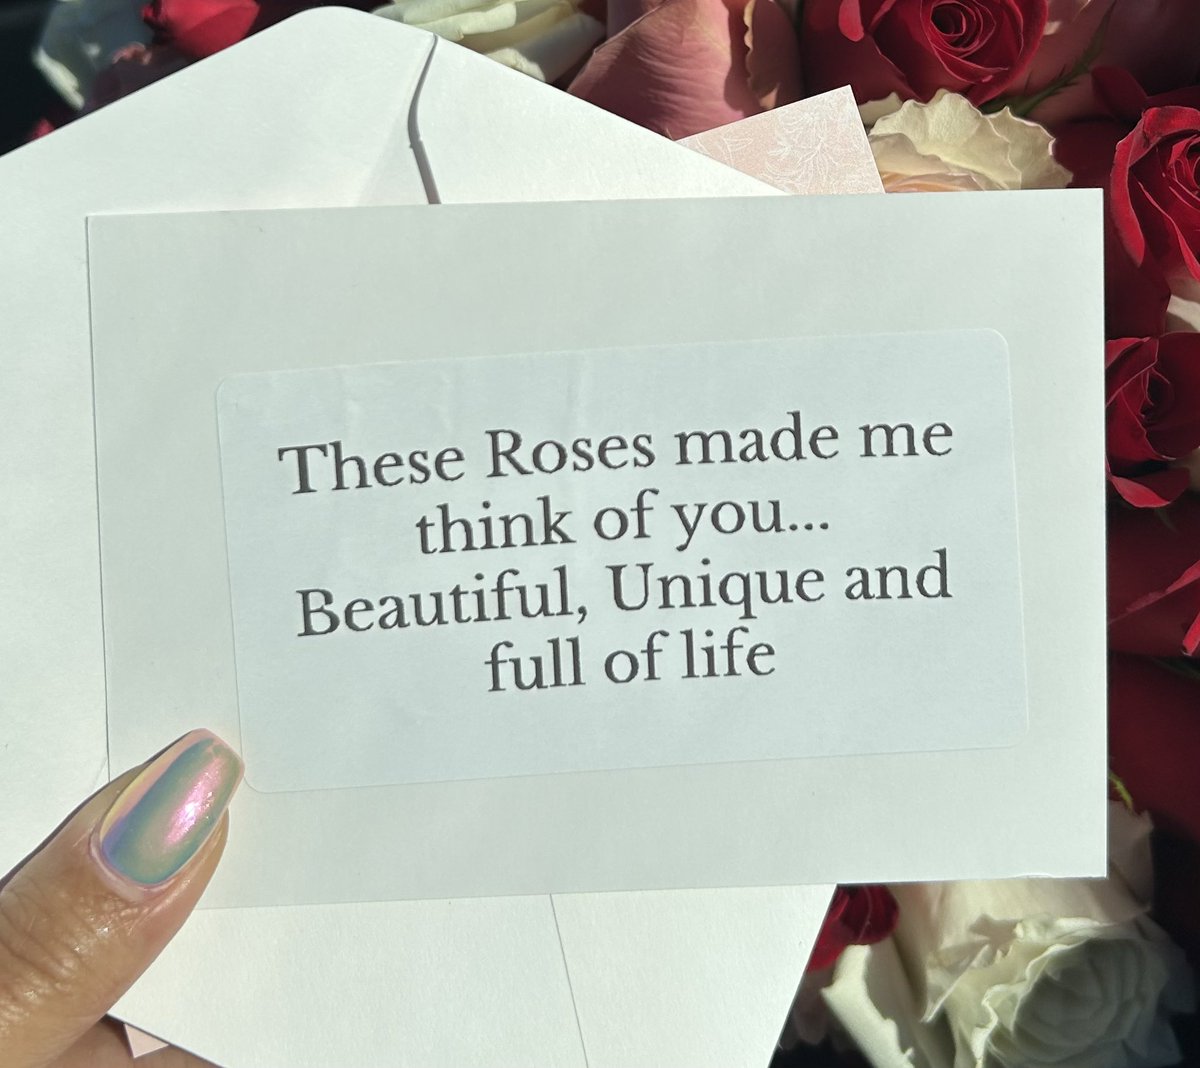 These Roses made me
think of you...
Beautiful, Unique and
full of life